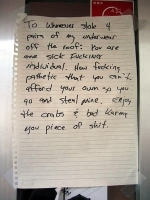 To Whomever stole 4
pairs of my underwear
off the roof: You are
one sick fucking
individual. How fucking
pathetic that you can't
afford your own so you
go and steal mine. Enjoy
the crabs & bad karma
you piece of shit.